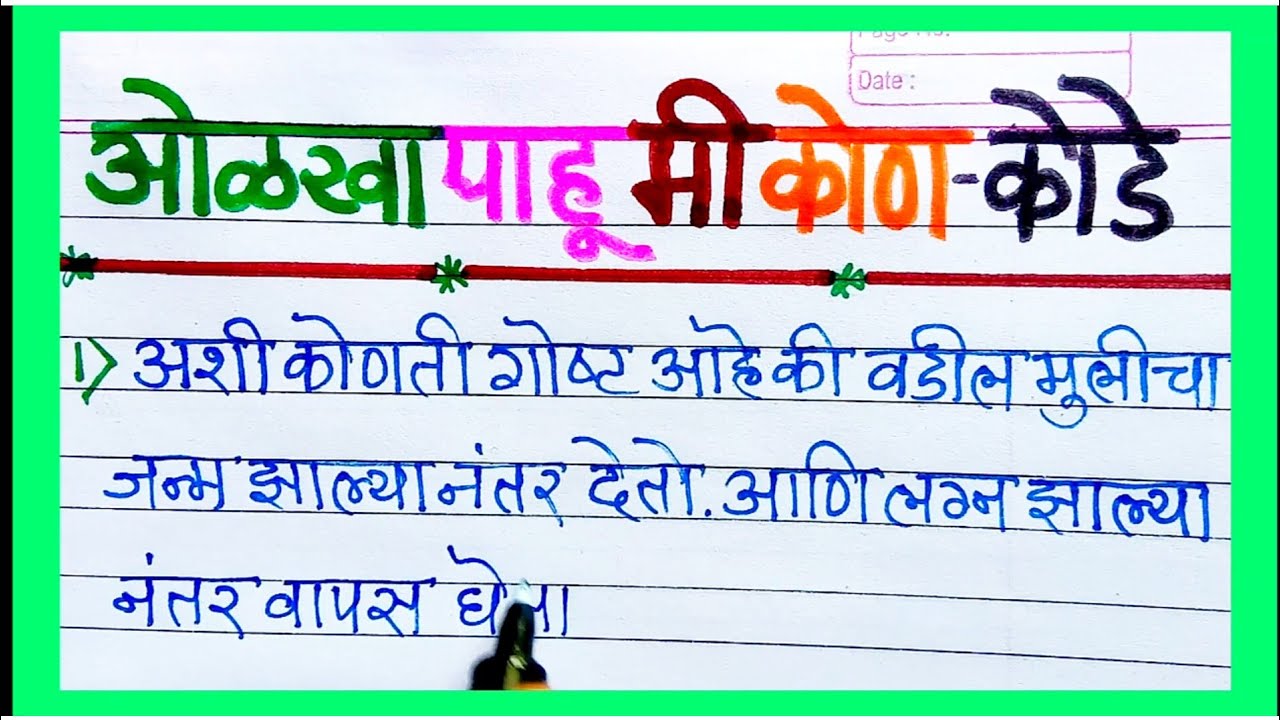 Page No.
Date :
ओळखा पाहू मी कोण-कोडे
1) अशी कोणती गोष्ट आहे की वडील मुलीचा
जन्म झाल्या नंतर देतो. आणि लग्न झाल्या
नंतर वापस